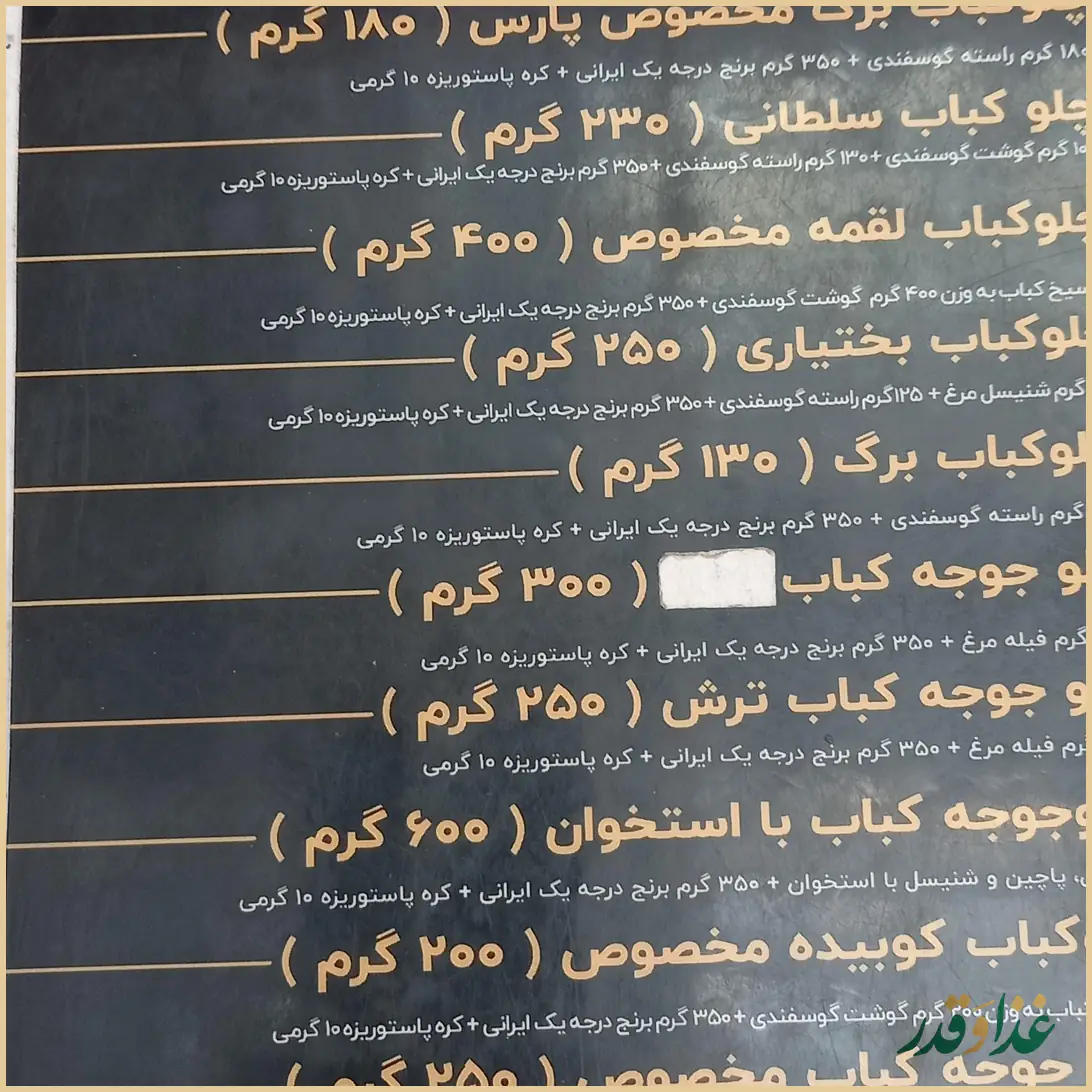 چلوکباب برگ مخصوص پارس ( ۱۸۰ گرم )
۱۸۰ گرم راسته گوسفندی + ۳۵۰ گرم برنج درجه یک ایرانی + کره پاستوریزه ۱۰ گرمی
چلو کباب سلطانی ( ۲۳۰ گرم )
گرم گوشت گوسفندی +۱۳۰ گرم راسته گوسفندی +۳۵۰ گرم برنج درجه یک ایرانی + کره پاستوریزه ۱۰ گرمی
چلوکباب لقمه مخصوص ( ۴۰۰ گرم )
سیخ کباب به وزن ۴۰۰ گرم گوشت گوسفندی + ۳۵۰ گرم برنج درجه یک ایرانی + کره پاستوریزه ۱۰ گرمی
لوکباب بختیاری ( ۲۵۰ گرم )
گرم شنیسل مرغ + ۱۲۵گرم راسته گوسفندی +۳۵۰ گرم برنج درجه یک ایرانی + کره پاستوریزه ۱۰ گرمی
لوکباب برگ ( ۱۳۰ گرم )
گرم راسته گوسفندی + ۳۵۰ گرم برنج درجه یک ایرانی + کره پاستوریزه ۱۰ گرمی
و جوجه کباب ( ۳۰۰ گرم )
گرم فیله مرغ + ۳۵۰ گرم برنج درجه یک ایرانی + کره پاستوریزه ۱۰ گرمی
و جوجه کباب ترش ( ۲۵۰ گرم )
رم فیله مرغ + ۳۵۰ گرم برنج درجه یک ایرانی + کره پاستوریزه ۱۰ گرمی
وجوجه کباب با استخوان ( ۶۰۰ گرم )
، پاچین و شنیسل با استخوان + ۳۵۰ گرم برنج درجه یک ایرانی + کره پاستوریزه ۱۰ گرمی
کباب کوبیده مخصوص ( ۲۰۰ گرم )
کباب به وزن ۲۰۰ گرم گوشت گوسفندی +۳۵۰ گرم برنج درجه یک ایرانی + کره پاستوریزه ۱۰ گرمی
جوجه کباب مخصوص ( ۲۵۰ گرم )
غذا و قدر